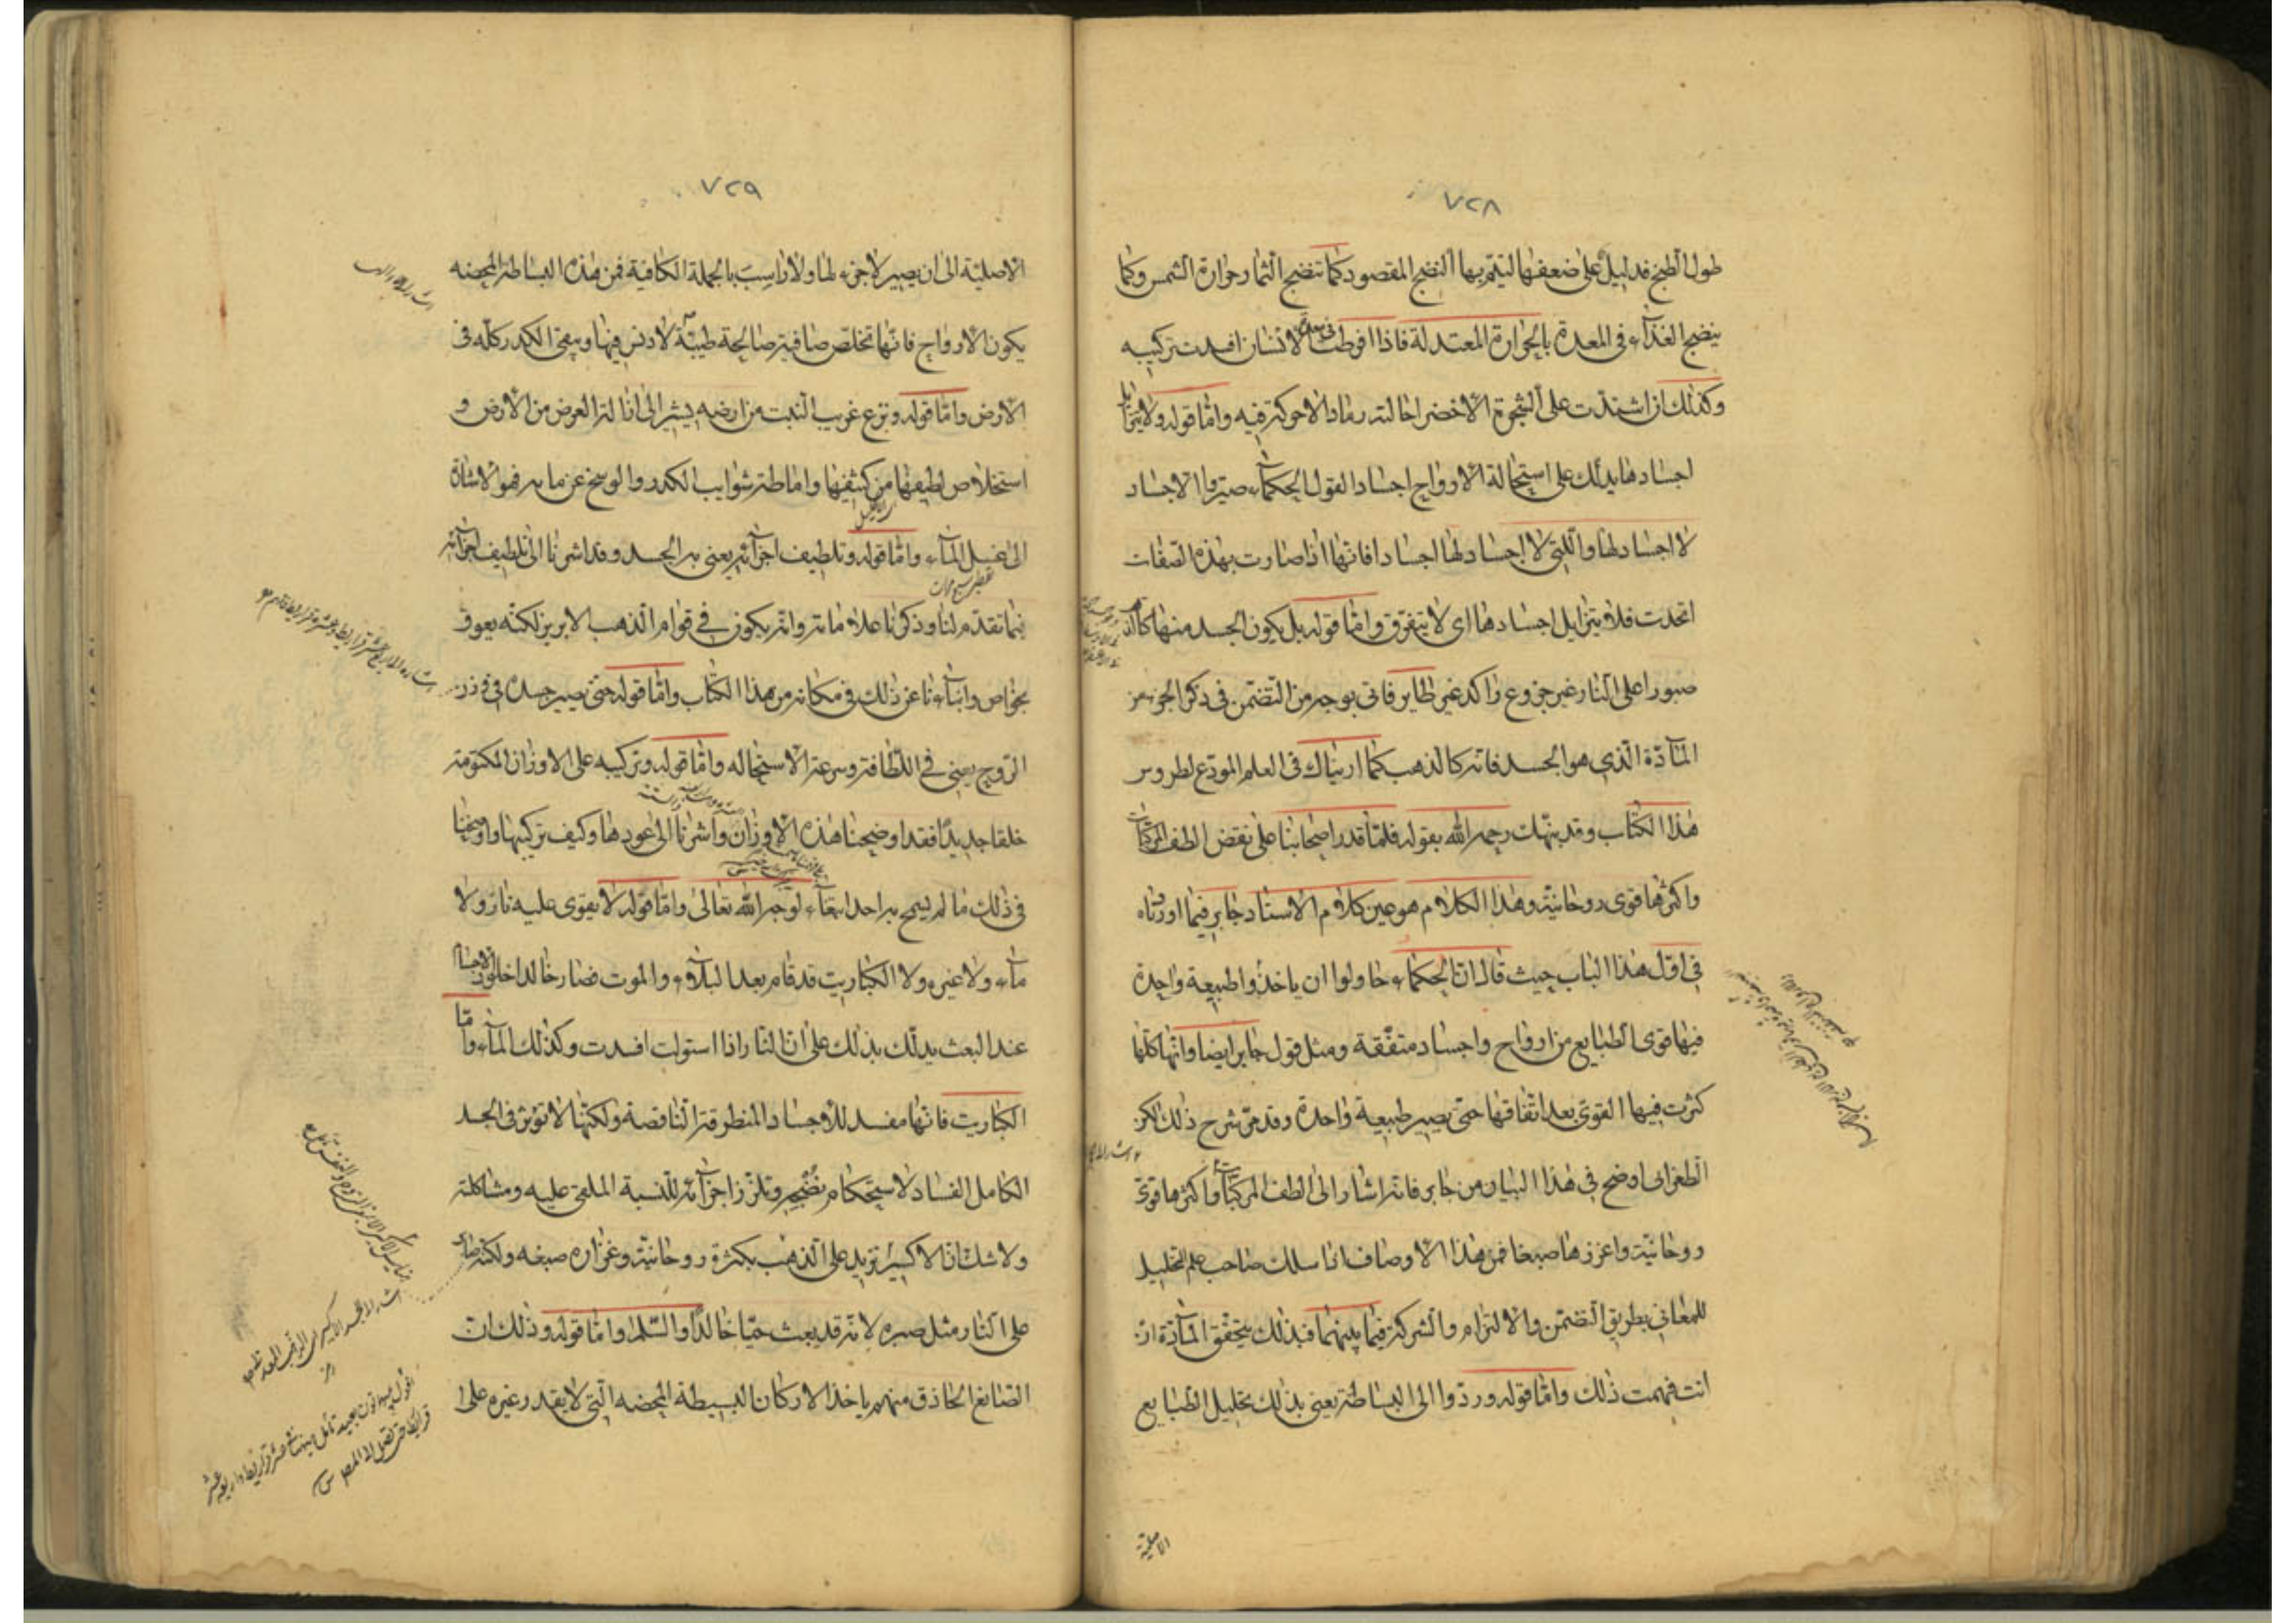 ٧٢٨
طول الطبخ فدليل على ضعفها ليتم بها النضج المقصود كما تنضج الثمار حرارة الشمس وكما
ينضج الغذاء في المعدة بالحرارة المعتدلة فاذا افرطت في معدة الانسان افسدت تركيبه
وكذلك ان اشتدت على الشجرة الاخضر احالته رمادا لا حركة فيه واما قوله ولا يتزايل
اجسادها يدلك على استحالة الارواح اجسادا لقول الحكماء صيروا الاجساد
لا اجساد لها والتي لا اجساد لها اجسادا فانها اذا صارت بهذه الصفات
اتحدت فلا يتزايل اجسادها اى لا يتفرق واما قوله بل يكون الجسد منها كالذهب
صبورا على النار غير جزوع راكد غير طاير فاتى بوجه من التضمن في ذكر الجزء من
المادة الذي هو الجسد فانه كالذهب كما اريناك في العلم المودع لطروس
هذا الكتاب وقد بينهات رحمه الله بقوله فلما قدر اصحابنا على نقض الطف المركبات
واكثرها قوى روحانية وهذا الكلام هو عين كلام الاستاد جابر فيما اوردناه
في اول هذا الباب حيث قال ان الحكماء حاولوا ان ياخذوا طبيعة واحدة
فيها قوى الطبايع من ارواح واجساد متفقة ومثل قول جابر ايضا وانها كلما
كثرت فيها القوى بعد اتفاقها حتى يصير طبيعة واحدة وقد مر شرح ذلك لكن
الطغرائى اوضح في هذا البيان من جابر فانه اشار الى الطف المركبات واكثرها قوى
روحانية واعزرها صبغا فمن هذا الاوصاف انا سلك صاحب علم التحليل
للمعانى بطريق التضمن والالتزام والشركة فيما بينهما فبذلك يتحقق المادة ان
انت فهمت ذلك واما قوله وردوا الى البساطة يعنى بذلك تحليل الطبايع
الاصلية
٧٢٩
الاصلية الى ان يصير لا جزء لها ولا راسب بالجملة الكافية فمن هذه البساطة المحضه
يكون الارواح فانها تخلص صافية صالحة طيبة لا دنس فيها ويبقى الكدر كله في
الارض واما قوله ونزع غريب النبت من ارضه يشير الى ازالة العرض من الارض و
استخلاص لطيفها من كثيفها واماطة شوايب الكدر والوسخ عن مايه فهو الاشارة
الى غسل الماء واما قوله وتلطيف اجزائه يعنى به الجسد وقد اشرنا الى تلطيف اجزائه
فيما تقدم لنا وذكرنا علاماته وانه يكون في قوام الذهب الابريز لكنه يعرف
بخواص وانباءنا عن ذلك في مكانه من هذا الكتاب واما قوله حتى يصير جسده في وزن
الروح يعنى في اللطافة وسرعة الاستحاله واما قوله وتركيبه على الاوزان المكتومة
خلقا جديدا فقد اوضحنا هذه الاوزان واشرنا الى عودها وكيف تركيبها واوضحنا
في ذلك ما لم يسمح به احد ابتغاء لوجه الله تعالى واما قوله لا يقوى عليه نار ولا
ماء ولا غيره ولا الكباريت قد قام بعد البلاء والموت فصار خالدا خلود الاجساد
عند البعث يدلك بذلك على ان النار اذا استولت افسدت وكذلك الماء واما
الكباريت فانها مفسد للاجساد المنطرقة الناقصة ولكنها لا تؤثر في الجسد
الكامل الفساد لاستحكام نضجه وتلزز اجزائه للنسبة الملقى عليه ومشاكلته
ولا شك ان الاكسير تزيد على الذهب بكثرة روحانية وغزارة صبغه ولكنه صابر
على النار مثل صبره لانه قد يبعث حيا خالدا والسلم واما قوله وذلك ان
الصانع الحاذق منهم ياخذ الاركان البسيطة المحضه التي لا يقدر غيره على